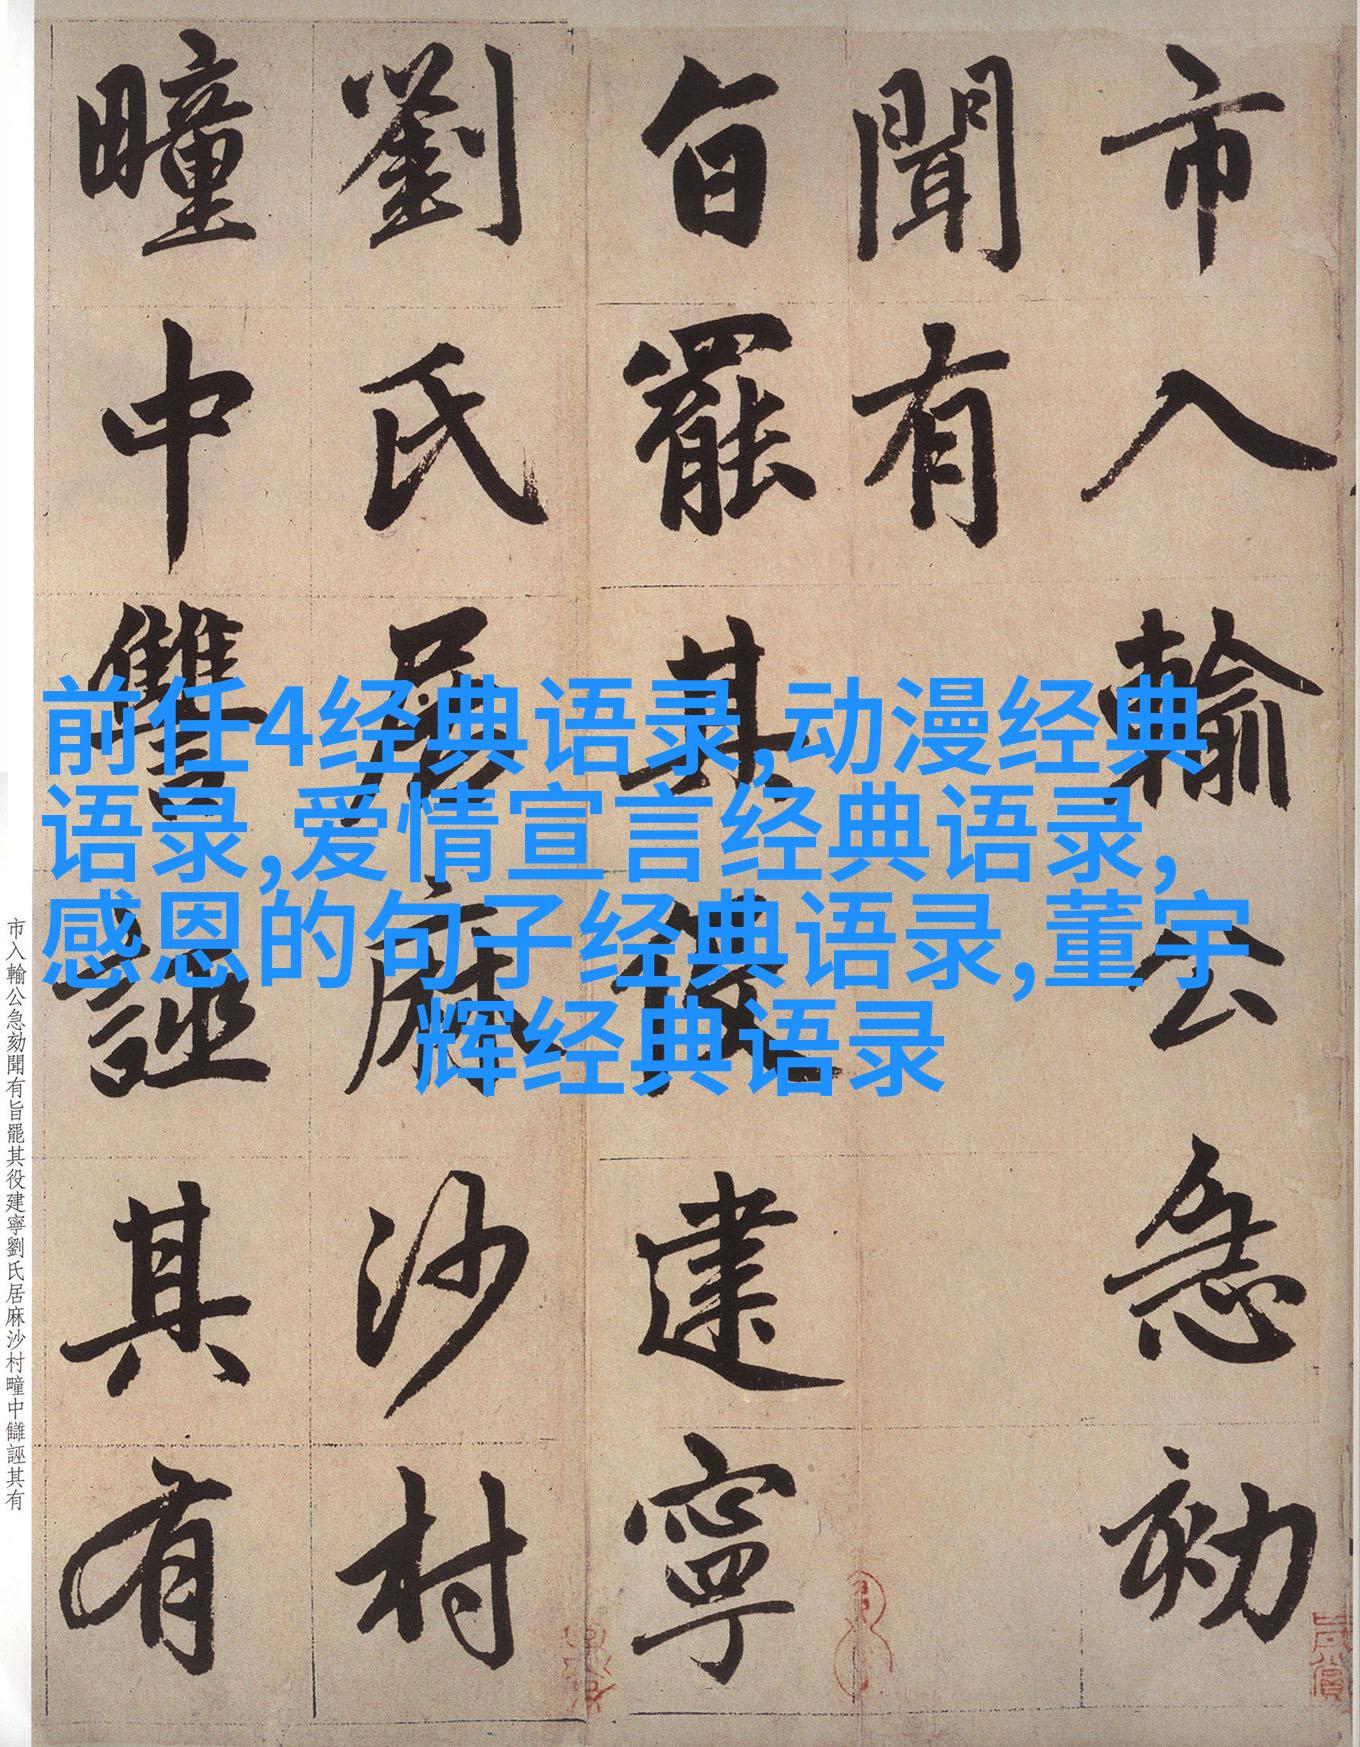 市入輸公急劾
聞有
旨罷其役建寧
劉氏居麻沙村
疃中讐誣其有
前任4经典语录,动漫经典
语录,爱情宣言经典语录,
感恩的句子经典语录,董宇
辉经典语录
市入輸公急劾聞有旨罷其役建寧劉氏居麻沙村疃中讎誣其有